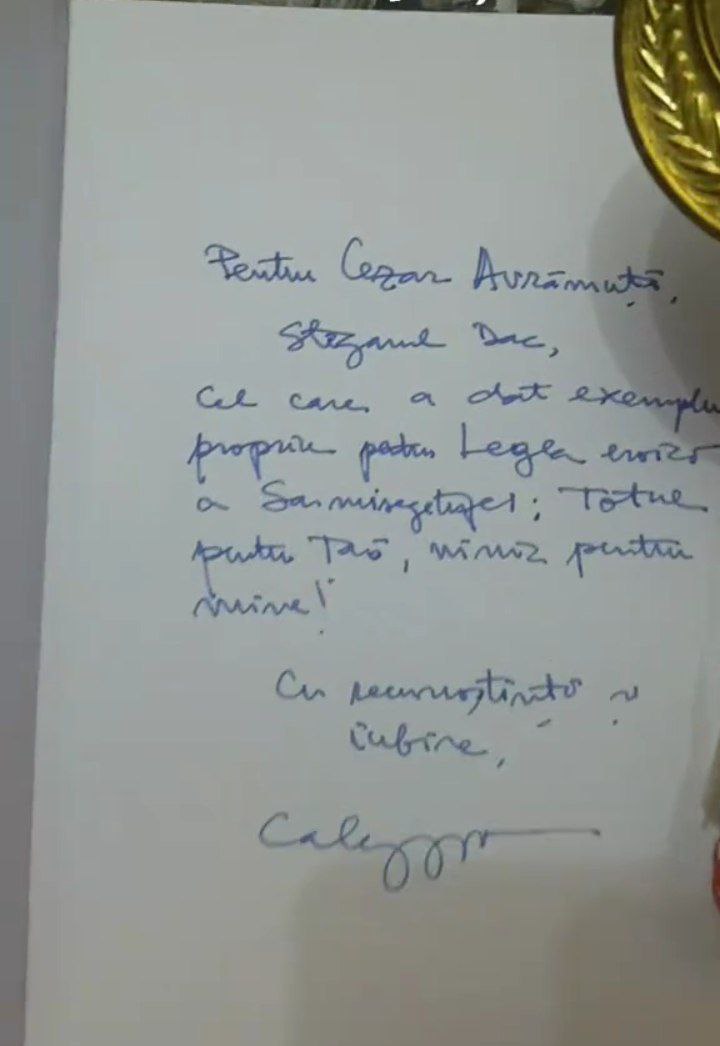 Pentru Cezar Avrămuță,
Stegarul Dac,
cel care a dat exemplu
propriu pentru Legea
a Sarmisegetuzei: Totul
pentru Țară, nimic pentru
mine!
Cu recunoștință și
iubire,